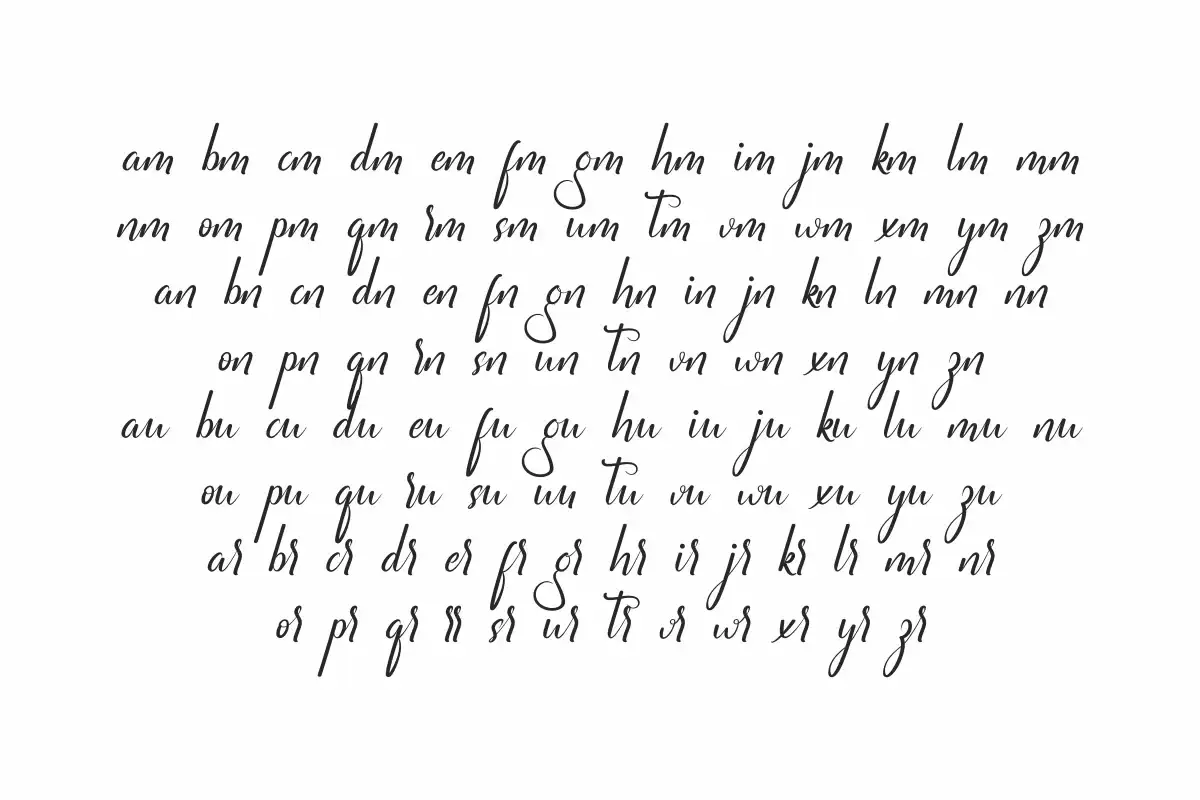 am bm cm dm em fm gm hm im jm km lm mm
nm om pm qm rm sm um tm vm wm xm ym zm
an bn cn dn en fn gn hn in jn kn ln mn nn
on pn qn rn sn un tn vn wn xn yn zn
au bu cu du eu fu gu hu iu ju ku lu mu nu
ou pu qu ru su uu tu vu wu xu yu zu
ar br cr dr er fr gr hr ir jr kr lr mr nr
or pr qr rr sr ur tr vr wr xr yr zr